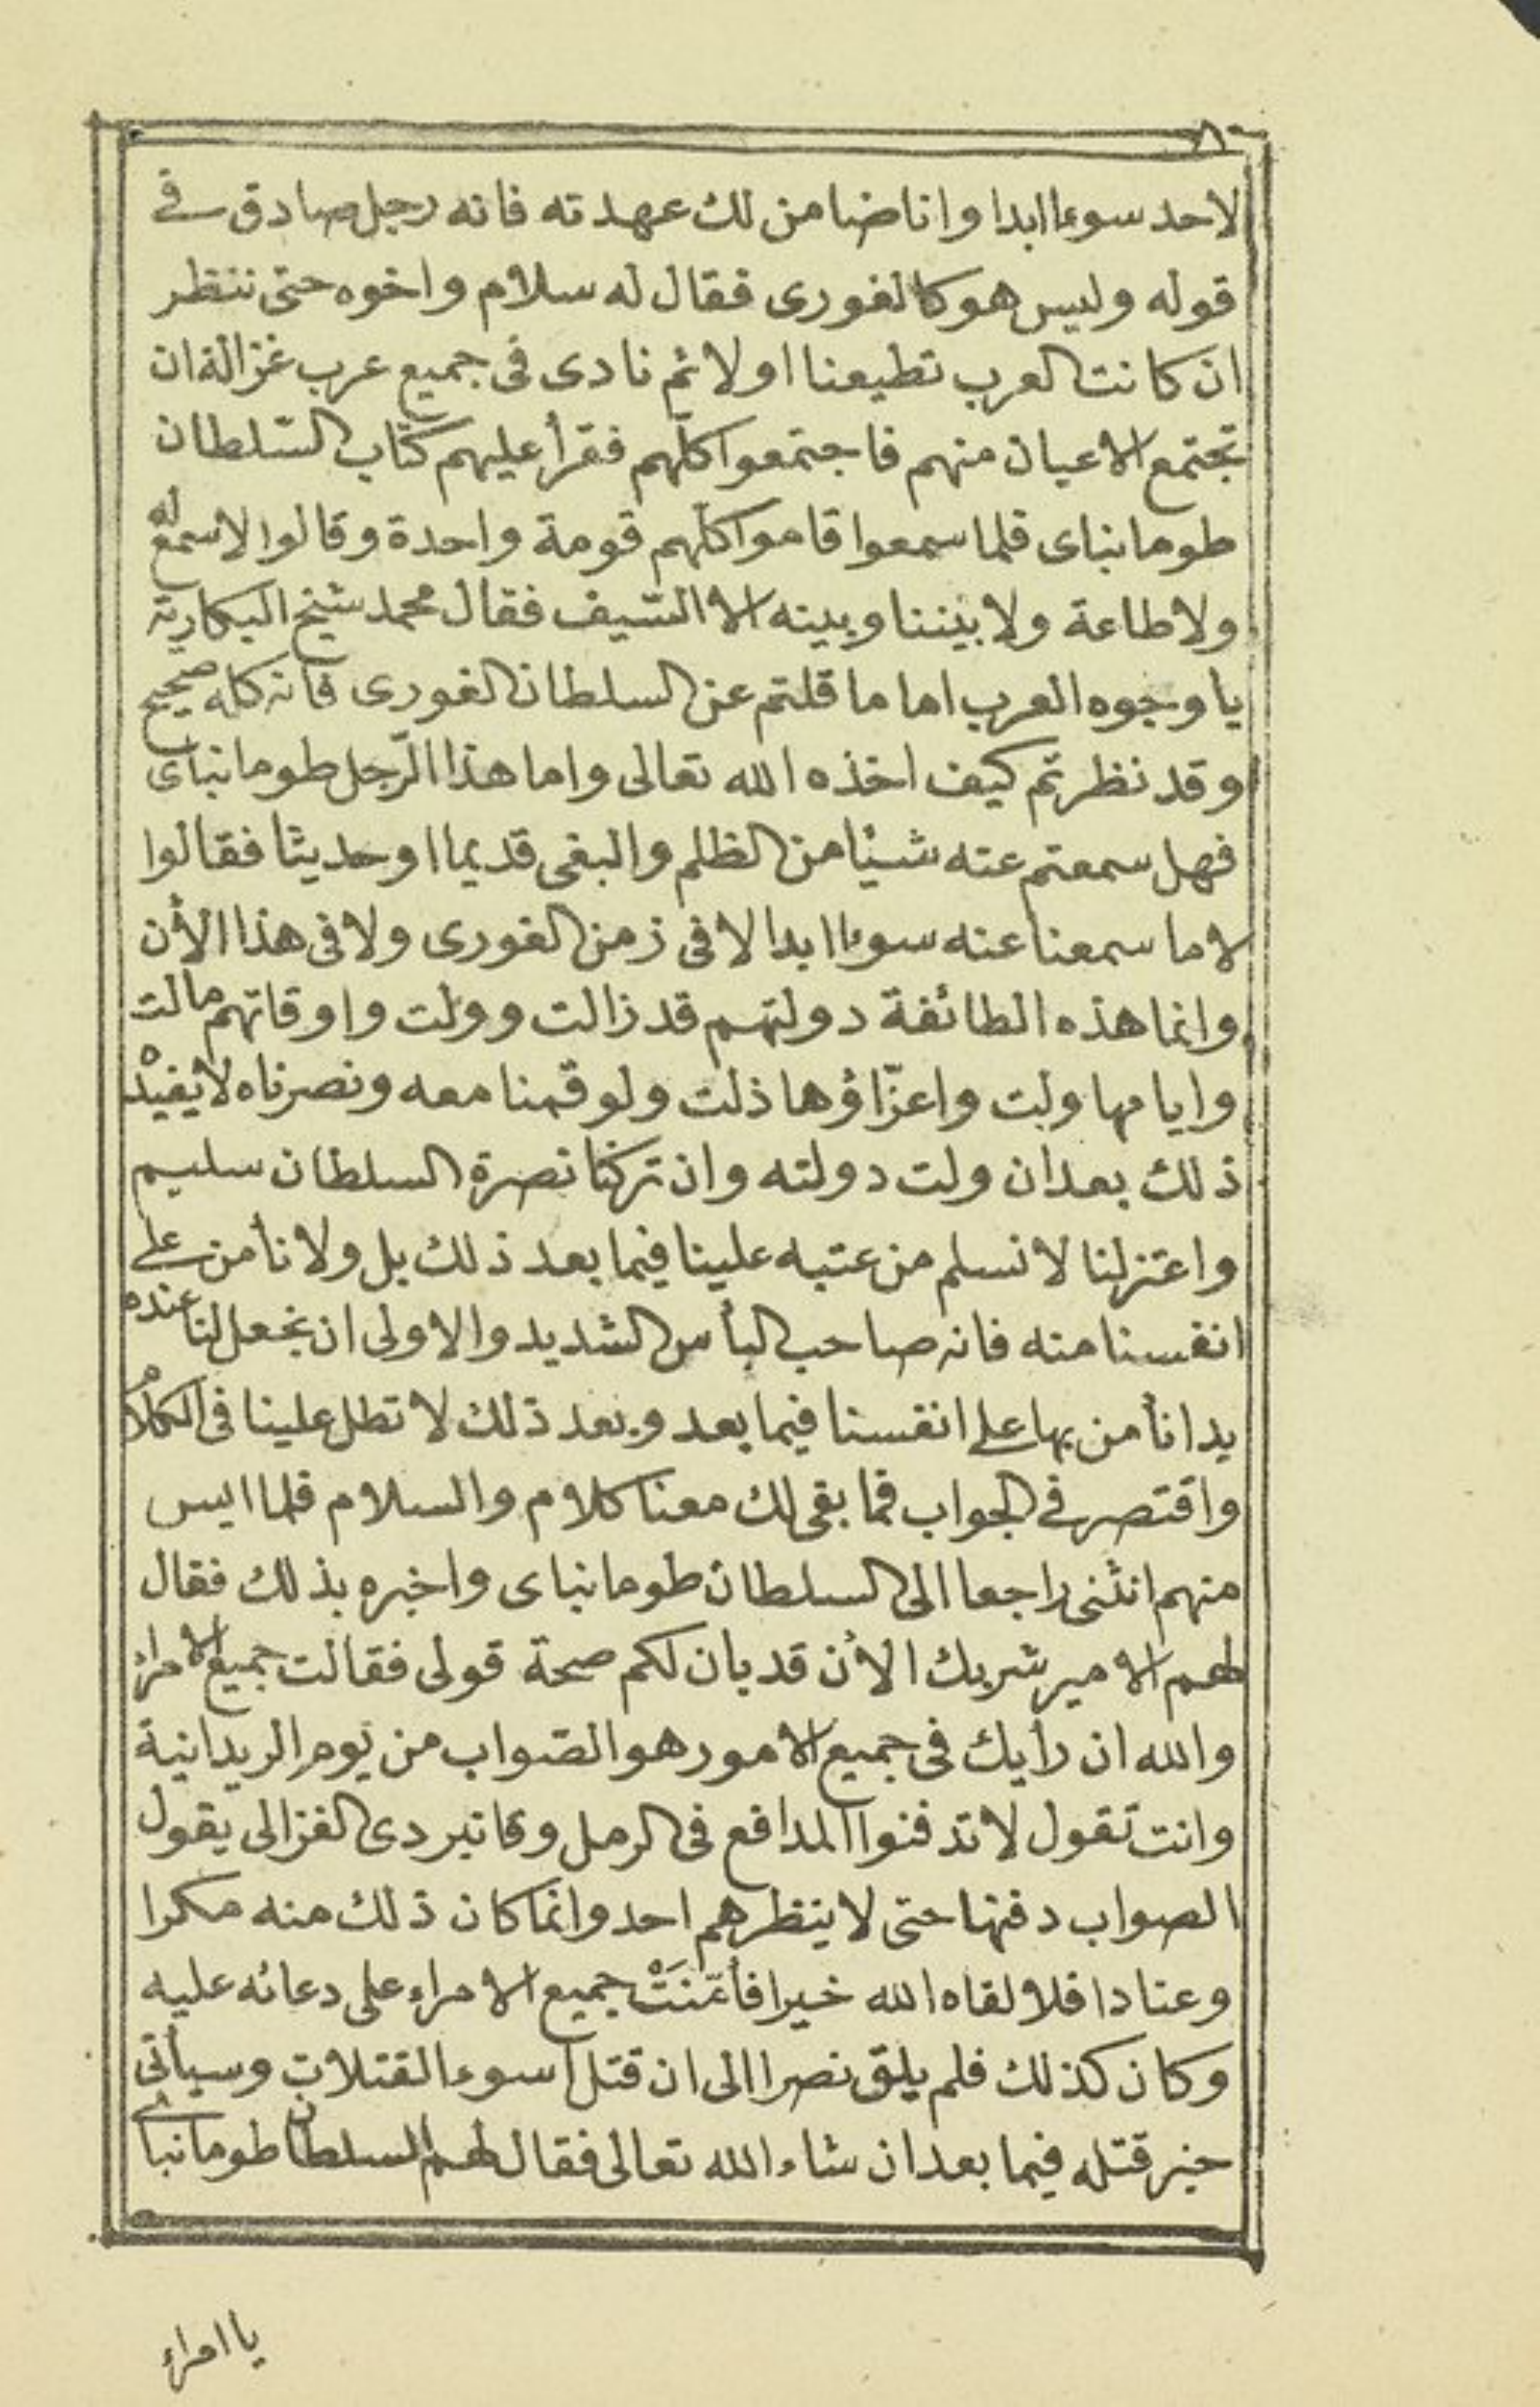 ٨٠
لاحد سوءا ابدا وانا ضامن لك عهدته فانه رجل صادق في
قوله وليس هو كالغورى فقال له سلام واخوه حتى ننظر
ان كانت العرب تطيعنا اولا ثم نادى فى جميع عرب غزالة ان
تجتمع الاعيان منهم فاجتمعوا كلّهم فقرأ عليهم كتاب السّلطان
طومانباى فلما سمعوا قاموا كلّهم قومة واحدة وقالوا لا سمع له
ولا طاعة ولا بيننا وبينه الا السّيف فقال محمد شيخ البكارية
يا وجوه العرب اما ما قلتم عن السلطان الغورى فانه كله صحيح
وقد نظرتم كيف اخذه الله تعالى واما هذا الرّجل طومانباى
فهل سمعتم عنه شيئا من الظلم والبغى قديما او حديثا فقالوا
لا ما سمعنا عنه سوءا ابدا لا فى زمن الغورى ولا فى هذا الأن
وانما هذه الطائفة دولتهم قد زالت وولت واوقاتهم مالت
وايامها ولت واعزّاؤها ذلت ولو قمنا معه ونصرناه لا يفيده
ذلك بعد ان ولت دولته وان تركنا نصرة السلطان سليم
واعتزلنا لا نسلم من عتبه علينا فيما بعد ذلك بل ولا نأمن على
انفسنا منه فانه صاحب البأس الشديد والاولى ان نجعل لنا عنده
يدا نأمن بها على انفسنا فيما بعد وبعد ذلك لا تطل علينا فى الكلام
واقتصر في الجواب فما بقى لك معنا كلام والسلام فلما ايس
منهم انثنى راجعا الى السلطان طومانباى واخبره بذلك فقال
لهم الامير شربك الأن قد بان لكم صحة قولى فقالت جميع الامراء
والله ان رأيك فى جميع الامور هو الصّواب من يوم الريدانية
وانت تقول لا تدفنوا المدافع فى الرمل وجانبردى الغزالى يقول
الصواب دفنها حتى لا ينظرهم احد وانما كان ذلك منه مكرا
وعنادا فلا لقاه الله خيرا فأمّنَتْ جميع الامراء على دعائه عليه
وكان كذلك فلم يلق نصرا الى ان قتل اسوء القتلات وسيأتى
خبر قتله فيما بعد ان شاء الله تعالى فقال لهم السلطان طومانباى
يا امراء